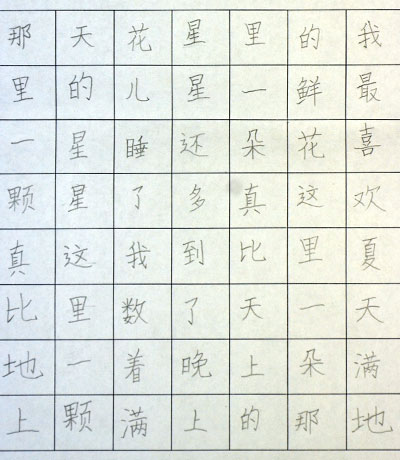 我最喜欢夏天满地
的鲜花这里一朵那
里一朵真比天上的
星星还多到了晚上
花儿睡了我数着满
天的星星这里一颗
那里一颗真比地上